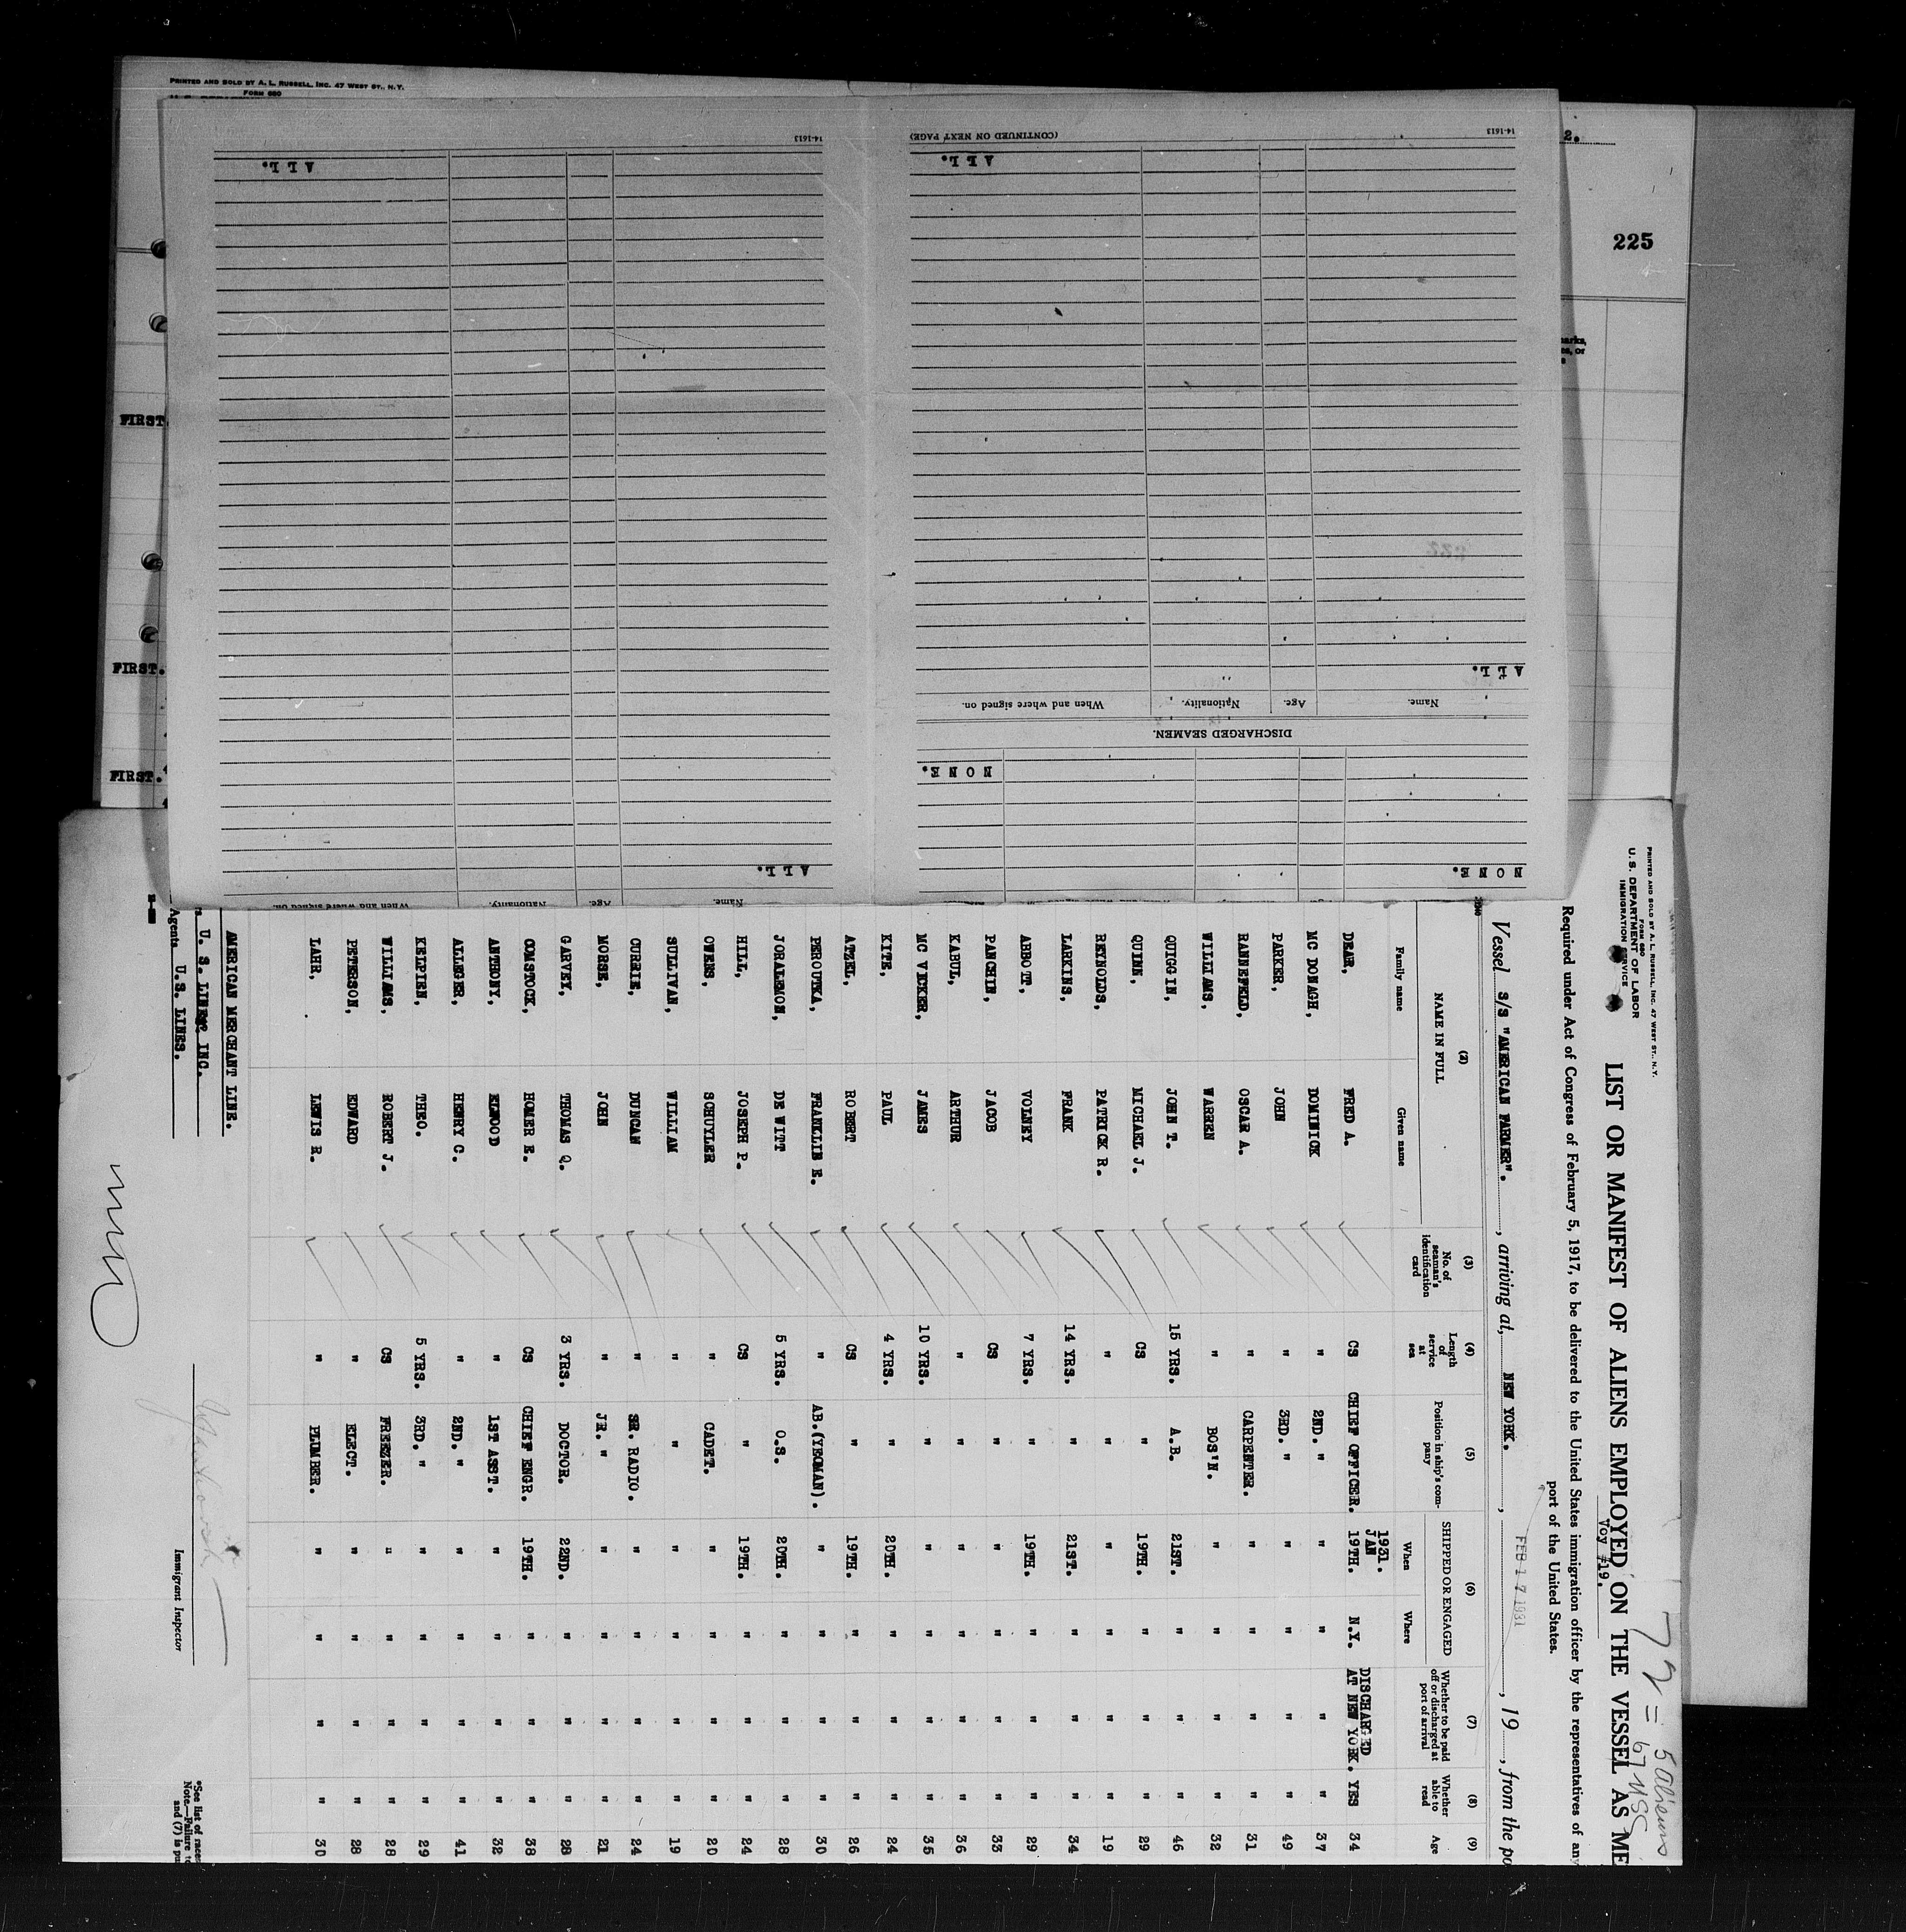 PRINTED AND SOLD BY A. L. RUSSELL, INC. 47 WEST ST., N.Y.
FORM 680
2.
225
FIRST
FIRST.
FIRST.
14-1613
(CONTINUED ON NEXT PAGE)
14-1613
A L L.
A L L.
A L L.
Name. Age. Nationality. When and where signed on.
DISCHARGED SEAMEN.
N O N E.
N O N E.
A L L.
Name. Age. Nationality. When and where signed on.
PRINTED AND SOLD BY A. L. RUSSELL, INC. 47 WEST ST., N.Y.
FORM 680
U. S. DEPARTMENT OF LABOR
IMMIGRATION SERVICE
72 = 5 aliens
67 USC
LIST OR MANIFEST OF ALIENS EMPLOYED ON THE VESSEL AS ME
Voy #19.
Required under Act of Congress of February 5, 1917, to be delivered to the United States immigration officer by the representatives of any
port of the United States.
FEB 17 1931
Vessel S/S "AMERICAN FARMER". , arriving at, NEW YORK. , , 19 , from the po
(2) (3) (4) (5) (6) (7) (8) (9)
NAME IN FULL No. of seaman's identification card Length of service at sea Position in ship's company SHIPPED OR ENGAGED Whether to be paid off or discharged at port of arrival Whether able to read Age
Family name Given name When Where
1931.
JAN DISCHARGED
DEAR, FRED A. CS CHIEF OFFICER. 19TH. N.Y. AT NEW YORK. YES 34
MC DONAGH, DOMINICK " 2ND. " " " " " 37
PARKER, JOHN " 3RD. " " " " " 49
RANNEFELD, OSCAR A. " CARPENTER. " " " " 31
WILLIAMS, WARREN " BOS'N. " " " " 32
QUIGGIN, JOHN T. 15 YRS. A.B. 21ST. " " " 46
QUINN, MICHAEL J. CS " 19TH. " " " 29
REYNOLDS, PATRICK R. " " " " " " 19
LARKINS, FRANK 14 YRS. " 21ST. " " " 34
ABBOTT, VOLNEY 7 YRS. " 19TH. " " " 29
PANCHIN, JACOB CS " " " " " 33
KABUL, ARTHUR " " " " " " 36
MC VICKER, JAMES 10 YRS. " " " " " 35
KITE, PAUL 4 YRS. " 20TH. " " " 24
ATZEL, ROBERT CS " 19TH. " " " 26
PEROUTKA, FRANKLIN E. " AB.(YEOMAN). " " " " 30
JORALEMON, DE WITT 5 YRS. O.S. 20TH. " " " 28
HILL, JOSEPH P. CS " 19TH. " " " 24
OWENS, SCHUYLER " CADET. " " " " 20
SULLIVAN, WILLIAM " " " " " " 19
CURRIE, DUNCAN " SR. RADIO. " " " " 24
MORSE, JOHN " JR. " " " " " 21
GARVEY, THOMAS Q. 3 YRS. DOCTOR. 22ND. " " " 28
COMSTOCK, HOMER E. CS CHIEF ENGR. 19TH. " " " 38
ANTHONY, ELWOOD " 1ST ASST. " " " " 32
ALLEGER, HENRY C. " 2ND. " " " " " 41
KELPIEN, THEO. 5 YRS. 3RD. " " " " " 29
WILLIAMS, ROBERT J. CS FREEZER. " " " " 28
PETERSON, EDWARD " ELECT. " " " " 28
LAHR, LEWIS R. " PLUMBER. " " " " 30
AMERICAN MERCHANT LINE.
U. S. LINES INC.
Agents U.S. LINES.
Immigrant Inspector
*See list of races
Note.—Failure to
and (7) is pu